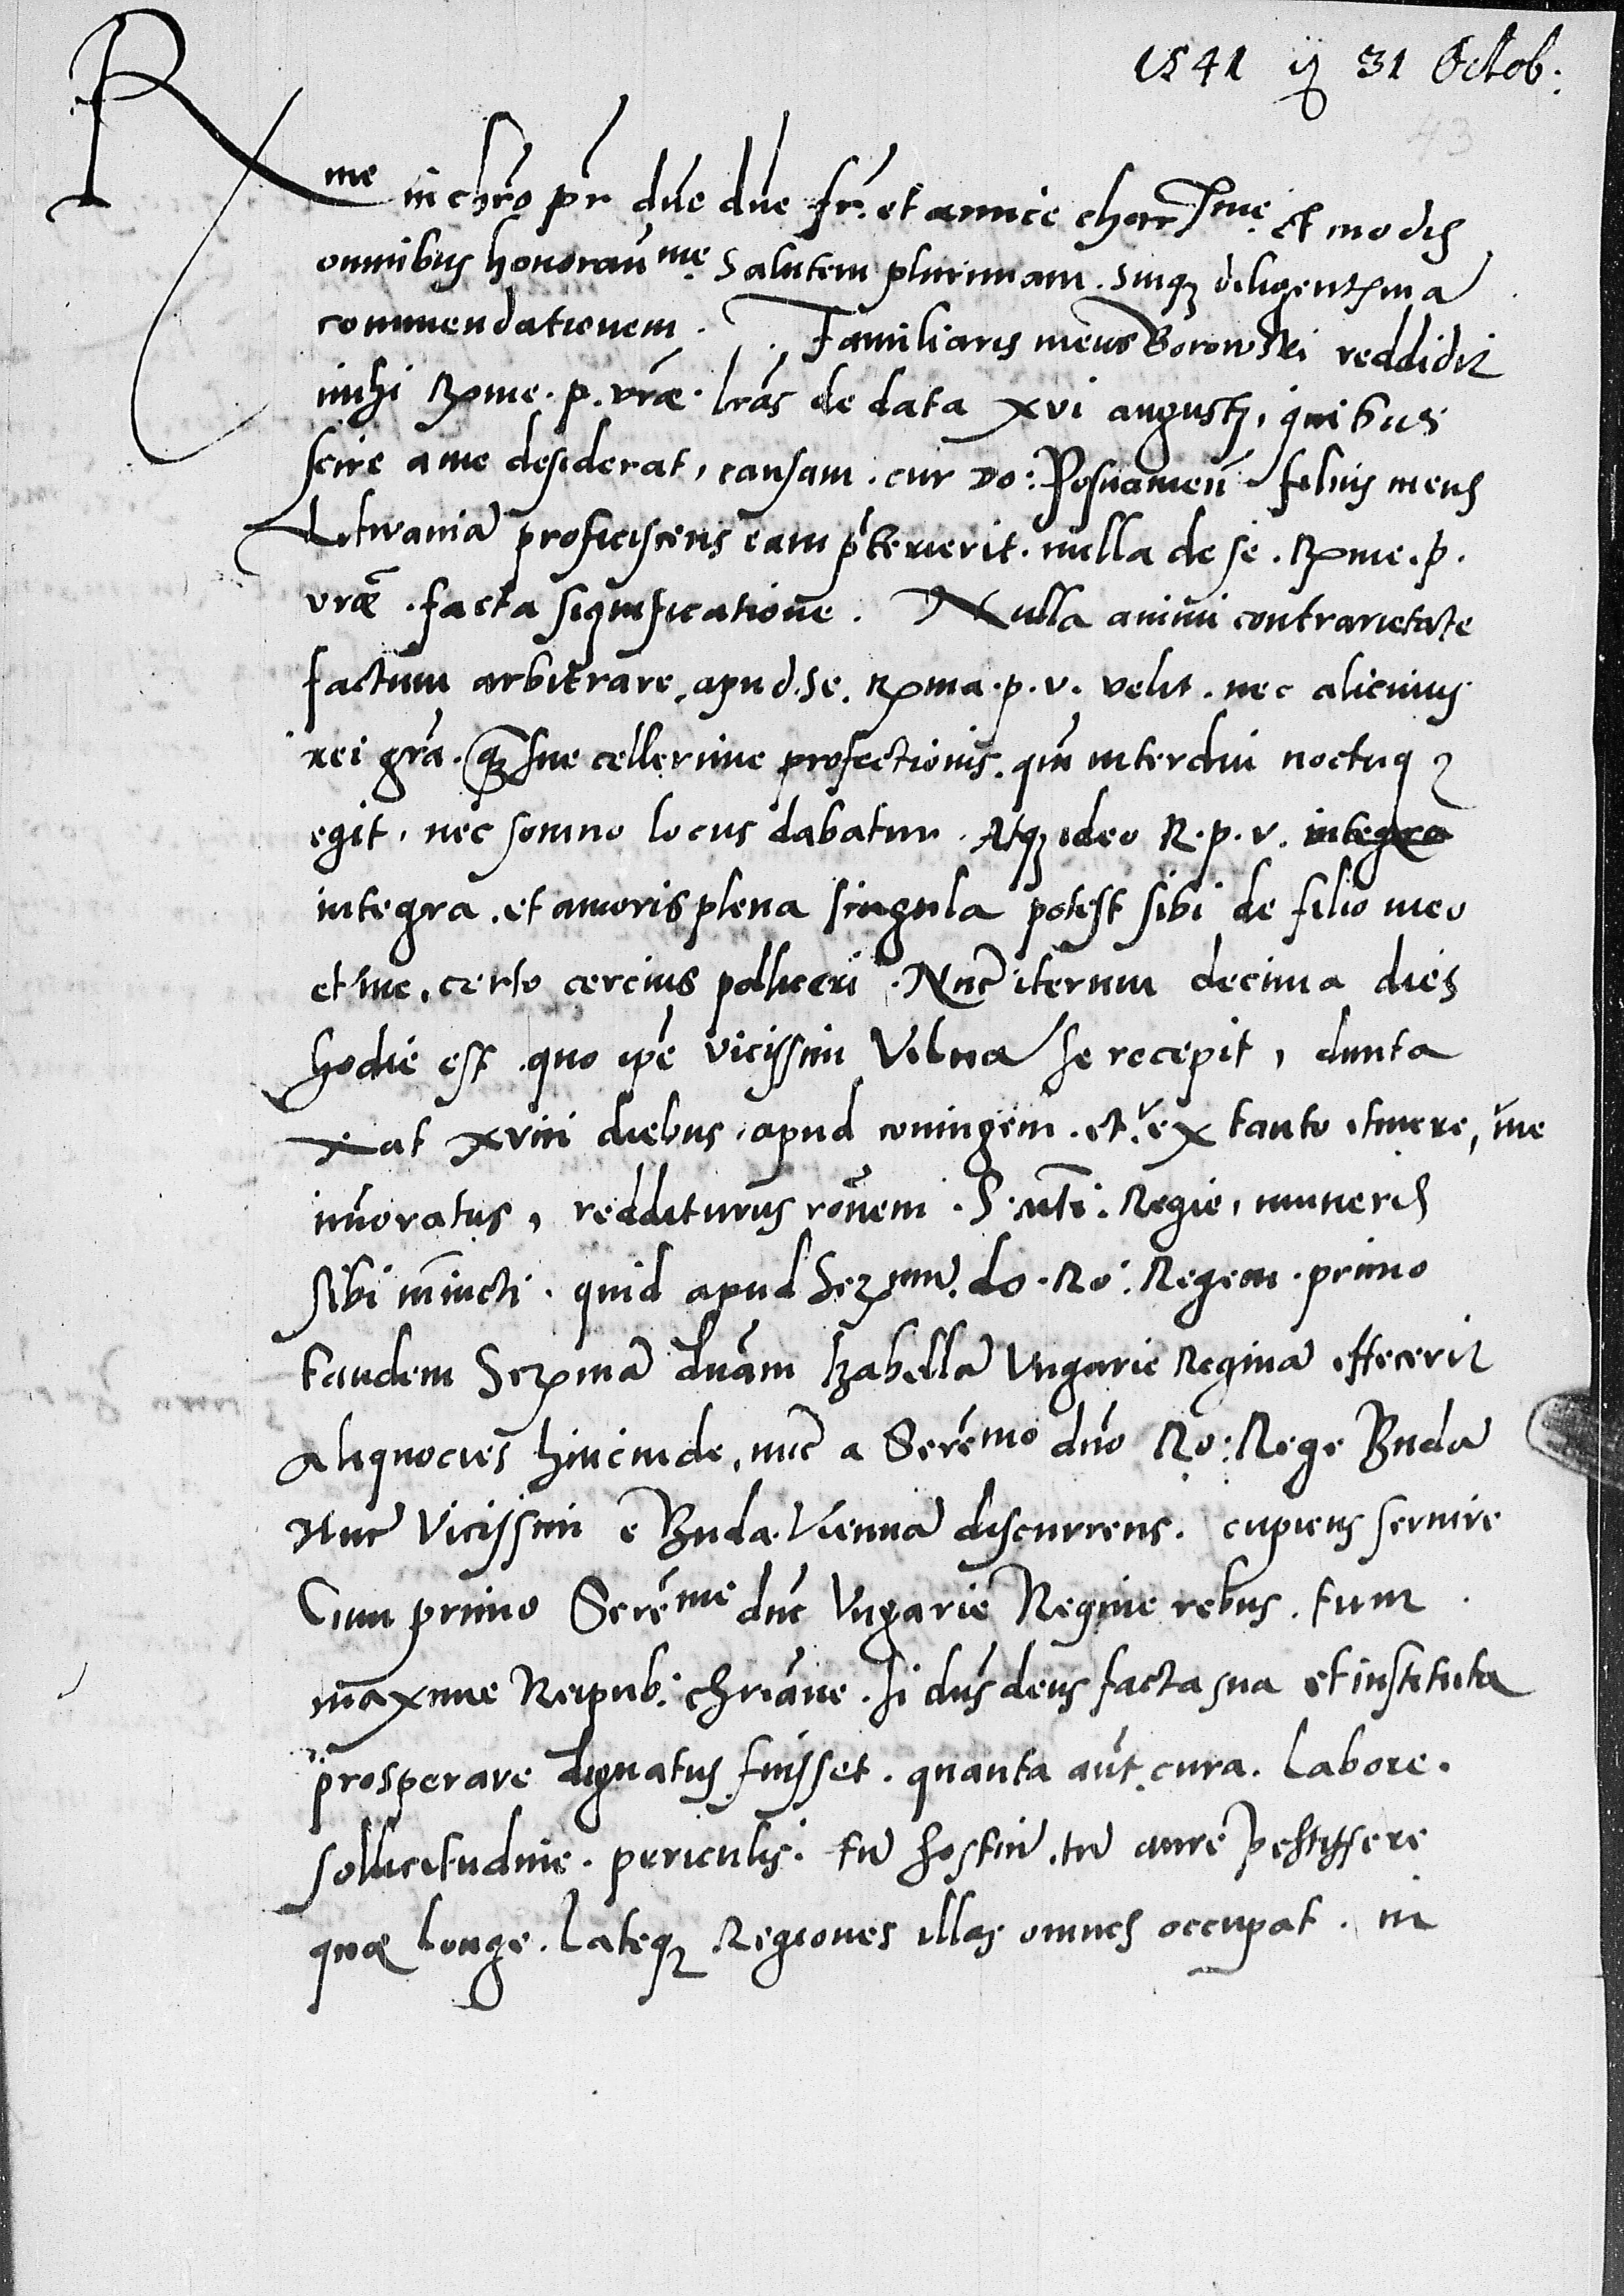 1541 31 Octob:
43
Rme in chro pr dne dne fr. et amice charisme. Et modis
omnibus honoranme. Salutem plurimam. suiqz diligentxma
commendationem. Familiaris meus Borowski reddidit
mihi Rxme. p. vrae. lras de data xvi augusti, quibus
scire a me desiderat, causam. cur do: Posnanien filius meus
Litwaniã proficiscens eam pterierit. nulla de se. Rxme. p.
vrae. facta significatione. Nulla animi contrarietate
factum arbitrare, apud. se. Rxma. p. v. velit. nec alicuius
rei gra. qz sue cellerime profectionis. qm interdiu noctuqz
egit, nec somno locus dabatur. Atqz ideo R. p. v. integra
integra. et amoris plena singula potest sibi de filio meo
et me, certo cercius polliceri. Nuc iterum decima dies
hodie est. quo ipe vicissim Vilnã se recepit, dunta
xat xviii diebus, apud coniugem. et ex tanto itinere, me
imoratus, redditurus ronem. S. mti. Regie, muneris
sibi iniuncti. quid apud Serxmu. do. Ro: Regem. primo
tandem Serxmã dnam Izabellã Vngarie Reginã effecerit
aliquocies hincinde, nuc a Serenmo dno Ro: Rege Budã
Nuc vicissim e Buda Viennã discurrens. cupiens servire
Cum primo Serenme dne Vngarie Regine rebus. tum
maxime Reipub: chriane. si dns deus facta sua et instituta
prosperare dignatus fuisset. quanta aut cura. labore.
sollicitudine. periculis. tu hostiu. tu aure pestifere
quae longe. lateqz Regiones illas omnes occupat. in